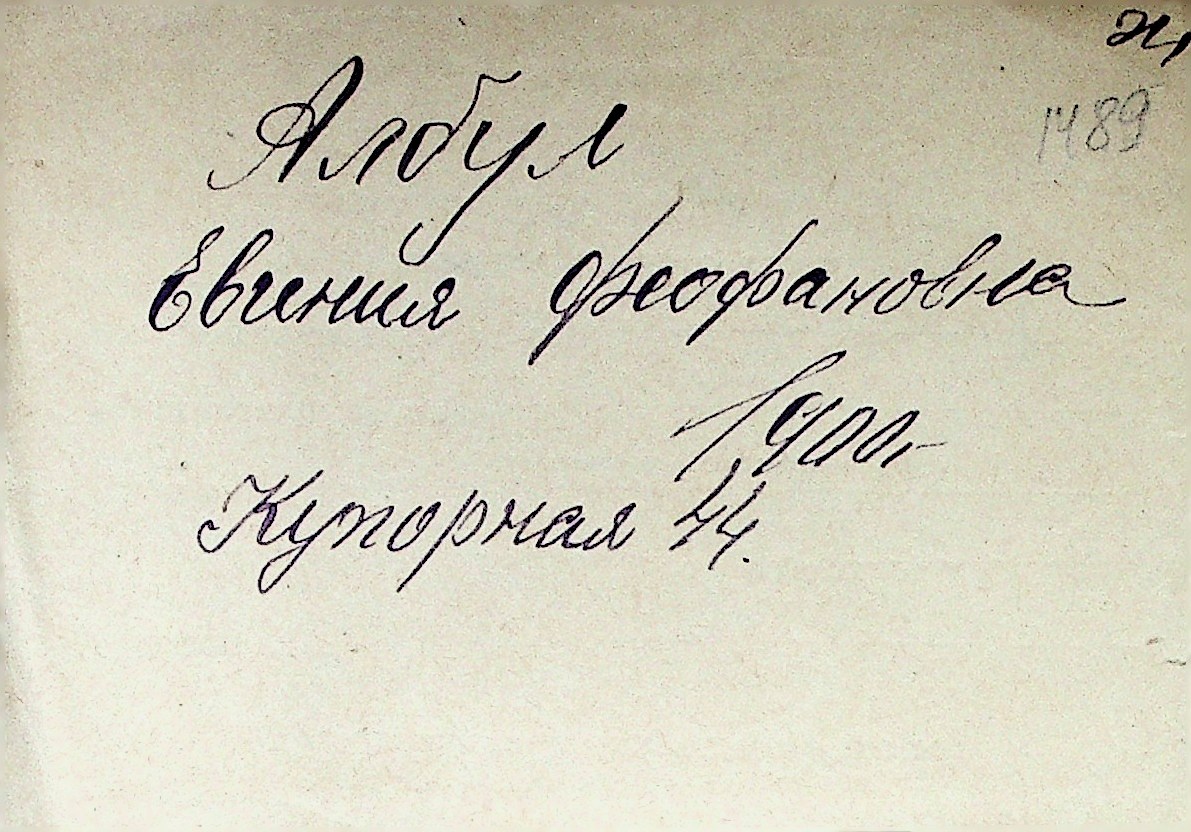 1489
Албул
Евгения Феофановна
1900г
Купорная 44.